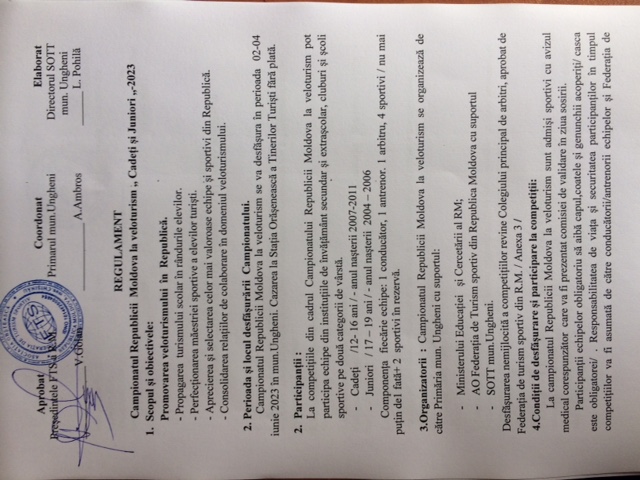 Aprobat Coordonat Elaborat
Președintele FTS al R.M. Primarul mun.Ungheni Directorul SOTT
mun. Ungheni
V. A.Ambros L. Pohilă
REGULAMENT
Campionatul Republicii Moldova la veloturism ,, Cadeți și Juniori ,,-2023
1. Scopul și obiectivele:
Promovarea veloturismului în Republică.
- Propagarea turismului scolar în rândurile elevilor.
- Perfecționarea măestriei sportive a elevilor turiști.
- Aprecierea și selectarea celor mai valoroase echipe și sportivi din Republică.
- Consolidarea relațiilor de colaborare în domeniul veloturismului.
2. Perioada și locul desfășurării Campionatului.
Campionatul Republicii Moldova la veloturism se va desfășura în perioada 02-04
iunie 2023 în mun.Ungheni. Cazarea la Stația Orășenească a Tinerilor Turiști fără plată.
2. Participanții :
La competițiile din cadrul Campionatului Republicii Moldova la veloturism pot
participa echipe din instituțiile de învățământ secundar și extrașcolar, cluburi și școli
sportive pe două categorii de vârstă.
- Cadeți /12- 16 ani / - anul nașterii 2007-2011
- Juniori / 17 – 19 ani / - anul nașterii 2004 – 2006
Componența fiecărie echipe: 1 conducător, 1 antrenor. 1 arbitru, 4 sportivi / nu mai
puțin de1 fată+ 2 sportivi în rezervă.
3.Organizatorii : Campionatul Republicii Moldova la veloturism se organizează de
către Primăria mun. Ungheni cu suportul:
- Ministerului Educației și Cercetării al RM;
- AO Federația de Turism sportiv din Republica Moldova cu suportul
- SOTT mun.Ungheni.
Desfășurarea nemijlocită a competițiilor revine Colegiului principal de arbitri, aprobat de
Federația de turism sportiv din R.M. / Anexa 3 /
4.Condiții de desfășurare și participare la competiții:
La campionatul Republicii Moldova la veloturism sunt admiși sportivi cu avizul
medical corespunzător care va fi prezentat comisiei de validare în ziua sosirii.
Participanții echipelor obligatoriu să aibă capul,coatele și genunchii acoperiți/ casca
este obligatorei/ . Responsabilitatea de viața și securitatea participanților în timpul
competițiilor va fi asumată de către conducătorii/antrenorii echipelor și Federația de